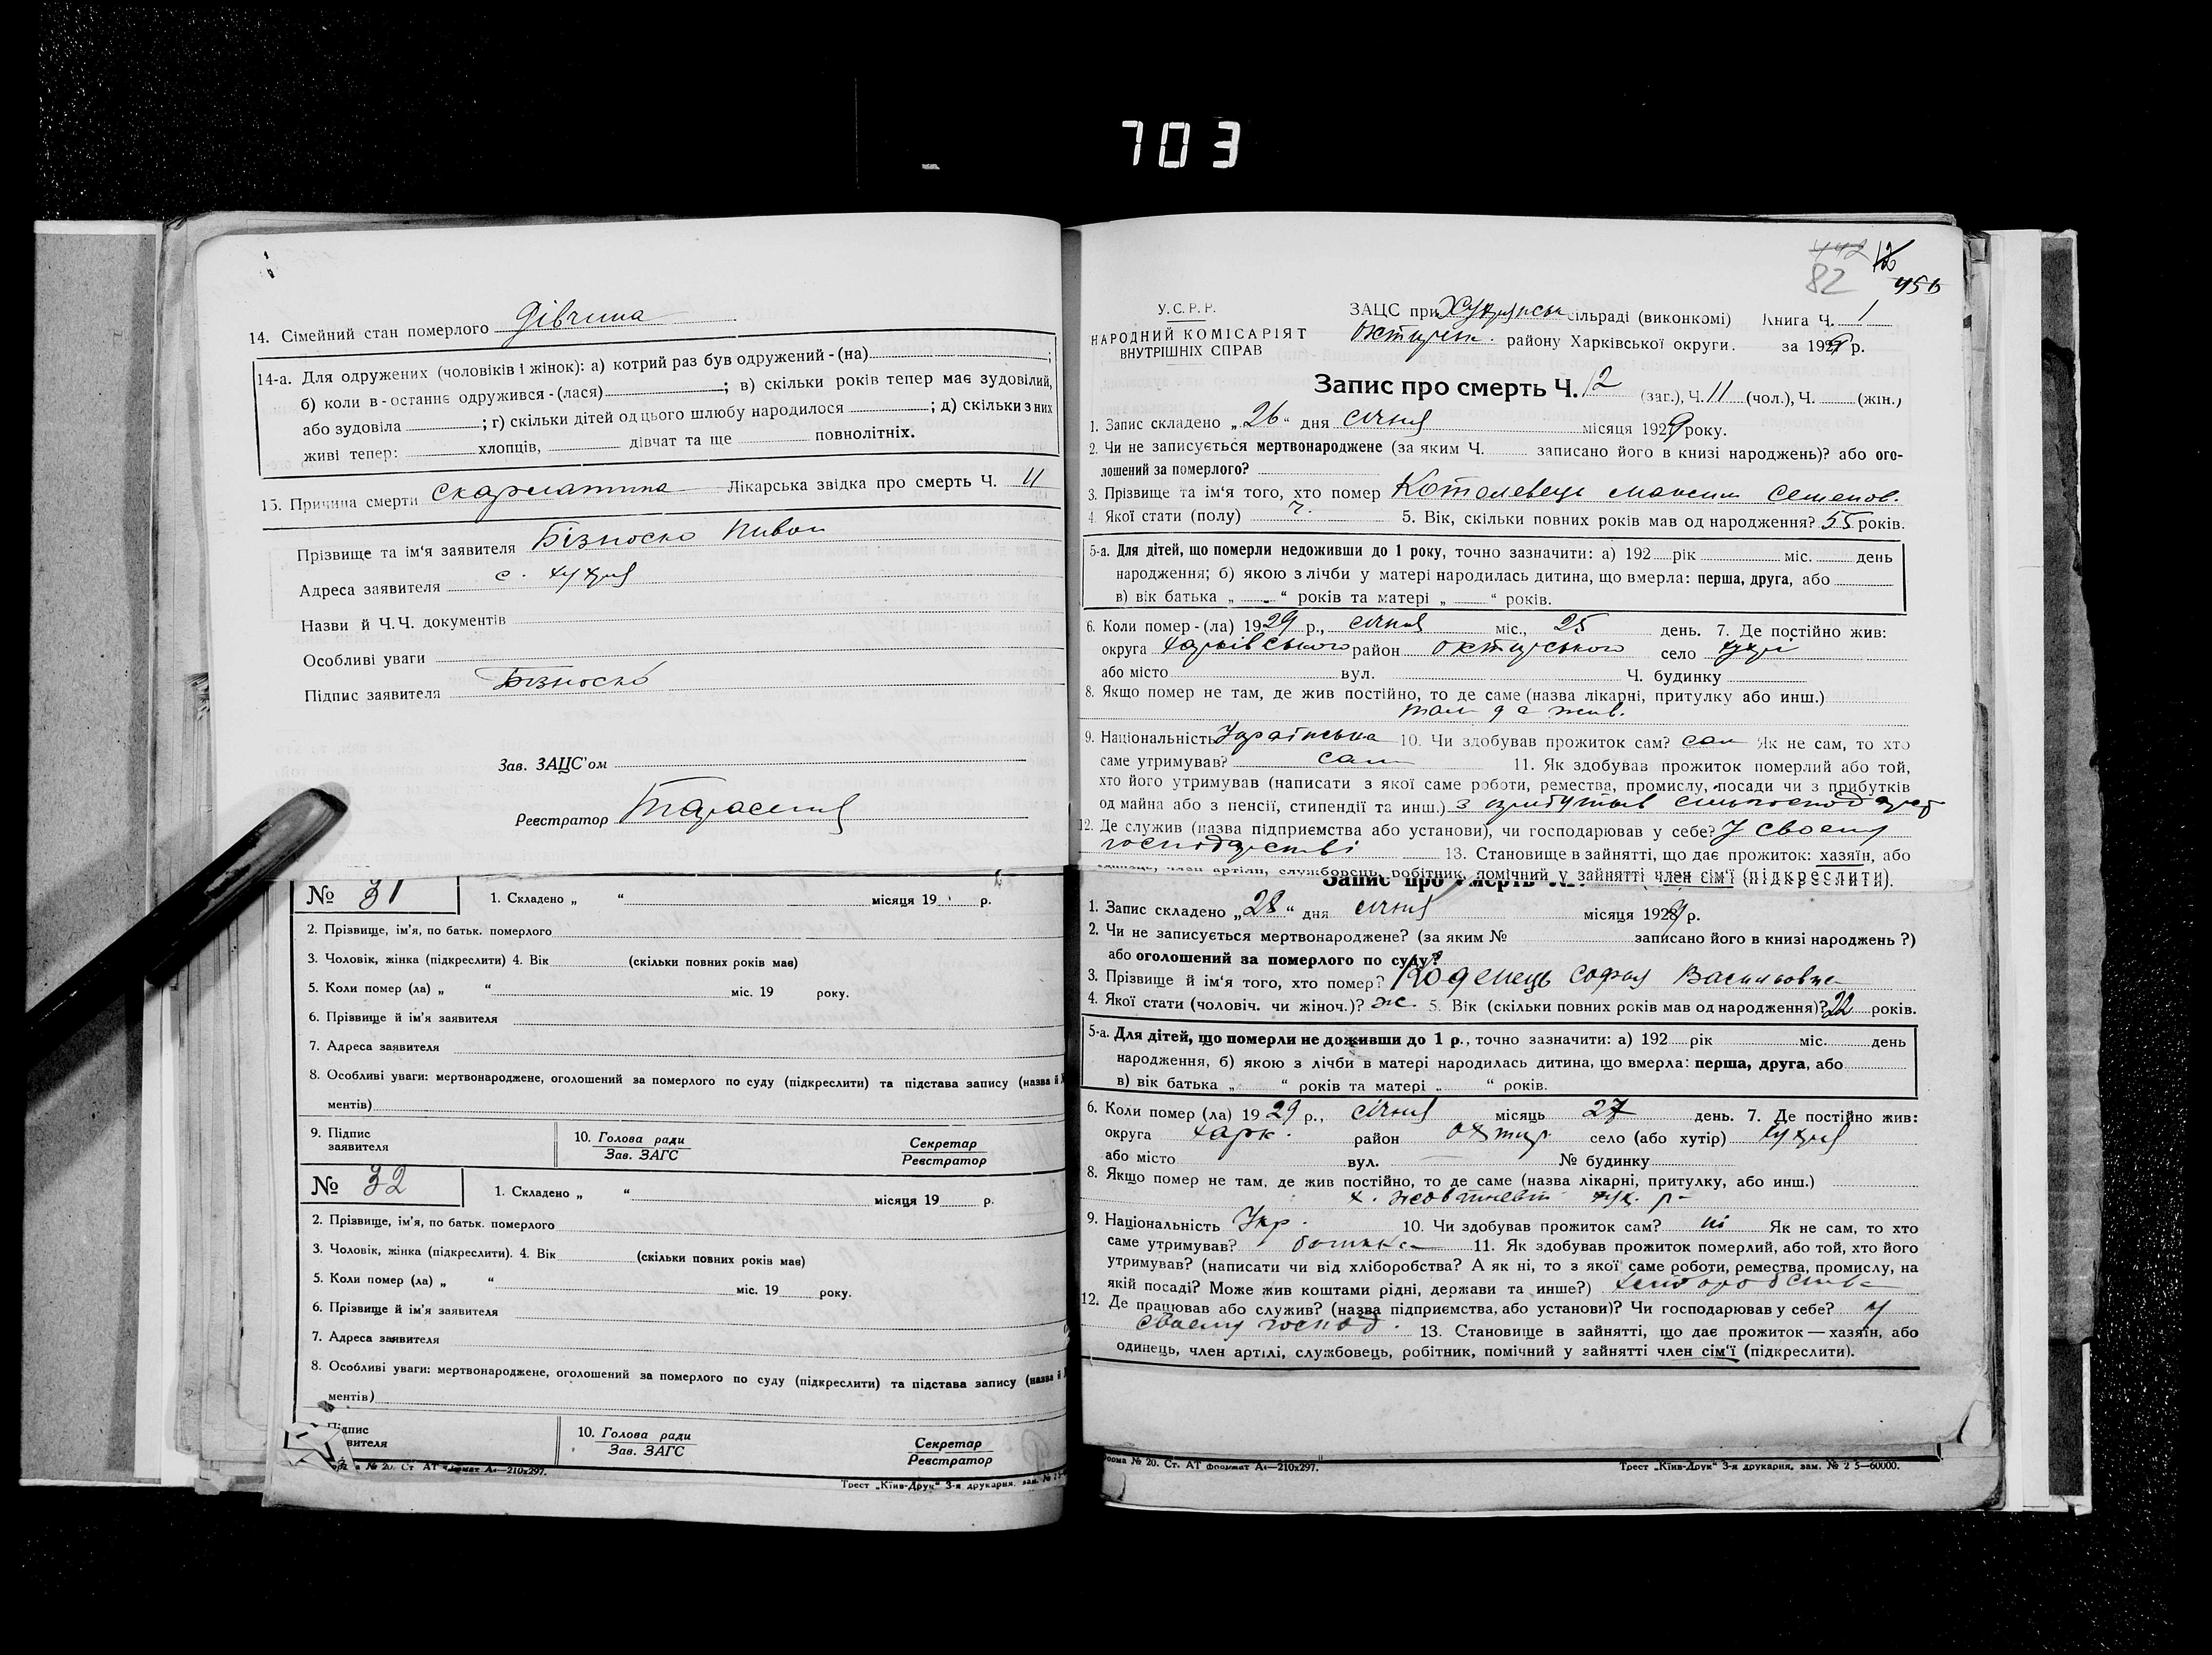 703
14. Сімейний стан померлого Дівчина
14-а. Для одружених (чоловіків і жінок): а) котрий раз був одружений - (на) ;
б) коли в-останнє одружився - (лася) ; в) скільки років тепер має зудовілий,
або зудовіла ; г) скільки дітей од цього шлюбу народилося ; д) скільки з них
живі тепер: хлопців, дівчат та ще повнолітніх.
15. Причина смерти скарлатина Лікарська звідка про смерть Ч. 11
Прізвище та ім'я заявителя Бізноско
Адреса заявителя с.
Назви й Ч.Ч. документів
Особливі уваги
Підпис заявителя Бізноско
Зав. ЗАЦС'ом
Реєстратор
№ 31 1. Складено „ “ місяця 19 р.
2. Прізвище, ім'я, по батьк. померлого
3. Чоловік, жінка (підкреслити) 4. Вік (скільки повних років має)
5. Коли помер (ла) „ “ міс. 19 року.
6. Прізвище й ім'я заявителя
7. Адреса заявителя
8. Особливі уваги: мертвонароджене, оголошений за померлого по суду (підкреслити) та підстава запису (назва й
ментів)
9. Підпис заявителя 10. Голова ради Зав. ЗАГС Секретар Реєстратор
№ 32 1. Складено „ “ місяця 19 р.
2. Прізвище, ім'я, по батьк. померлого
3. Чоловік, жінка (підкреслити). 4. Вік (скільки повних років має)
5. Коли помер (ла) „ “ міс. 19 року.
6. Прізвище й ім'я заявителя
7. Адреса заявителя
8. Особливі уваги: мертвонароджене, оголошений за померлого по суду (підкреслити) та підстава запису (назва й
ментів)
10. Голова ради Зав. ЗАГС Секретар Реєстратор
№ 20. Ст. АТ формат А4—210x297.
Трест „Київ-Друк“ 3-я друкарня, зам. №
82
У.С.Р.Р.
НАРОДНИЙ КОМІСАРІЯТ
ВНУТРІШНІХ СПРАВ
ЗАЦС при сільраді (виконкомі) Книга Ч. 1
району Харківської округи. за 1929 р.
Запис про смерть Ч. 12 (заг.), Ч. 11 (чол.), Ч. (жін.)
1. Запис складено „26“ дня січня місяця 1929 року.
2. Чи не записується мертвонароджене (за яким Ч. записано його в книзі народжень)? або ого-
лошений за померлого?
3. Прізвище та ім'я того, хто помер Котолевець Максим Семенов.
4. Якої стати (полу) ч. 5. Вік, скільки повних років мав од народження? 55 років.
5-а. Для дітей, що померли недоживши до 1 року, точно зазначити: а) 192 рік міс. день
народження; б) якою з лічби у матері народилась дитина, що вмерла: перша, друга, або
в) вік батька „ “ років та матері „ “ років.
6. Коли помер - (ла) 1929 р., січня міс., 25 день. 7. Де постійно жив:
округа Харківського район село
або місто вул. Ч. будинку
8. Якщо помер не там, де жив постійно, то де саме (назва лікарні, притулку або инш.)
там де жив.
9. Національність Українська 10. Чи здобував прожиток сам? сам Як не сам, то хто
саме утримував? сам 11. Як здобував прожиток померлий або той,
хто його утримував (написати з якої саме роботи, ремества, промислу, посади чи з прибутків
од майна або з пенсії, стипендії та инш.) з
12. Де служив (назва підприємства або установи), чи господарював у себе? У своєму
господарстві 13. Становище в зайнятті, що дає прожиток: хазяїн, або
одинець, член артіли, службовець, робітник, помічний у зайнятті член сім'ї (підкреслити).
Запис про смерть
1. Запис складено „28“ дня січня місяця 1929 р.
2. Чи не записується мертвонароджене? (за яким № записано його в книзі народжень ?)
або оголошений за померлого по суду?
3. Прізвище й ім'я того, хто помер? Коденець Софья Васильовна
4. Якої стати (чоловіч. чи жіноч.)? ж. 5. Вік (скільки повних років мав од народження)? 22 років.
5-а. Для дітей, що померли не доживши до 1 р., точно зазначити: а) 192 рік міс. день
народження, б) якою з лічби в матері народилась дитина, що вмерла: перша, друга, або
в) вік батька „ “ років та матері „ “ років.
6. Коли помер (ла) 1929 р., січня місяць 27 день. 7. Де постійно жив:
округа Харк. район Охтир. село (або хутір)
або місто вул. № будинку
8. Якщо помер не там, де жив постійно, то де саме (назва лікарні, притулку, або инш.)
9. Національність Укр. 10. Чи здобував прожиток сам? ні Як не сам, то хто
саме утримував? 11. Як здобував прожиток померлий, або той, хто його
утримував? (написати чи від хліборобства? А як ні, то з якої саме роботи, ремества, промислу, на
якій посаді? Може жив коштами рідні, держави та инше?)
12. Де працював або служив? (назва підприємства, або установи)? Чи господарював у себе? у
своєму господ. 13. Становище в зайнятті, що дає прожиток — хазяїн, або
одинець, член артілі, службовець, робітник, помічний у зайнятті член сім'ї (підкреслити).
№ 20. Ст. АТ формат А4—210x297.
Трест „Київ-Друк“ 3-я друкарня, зам. № 2 5—60000.